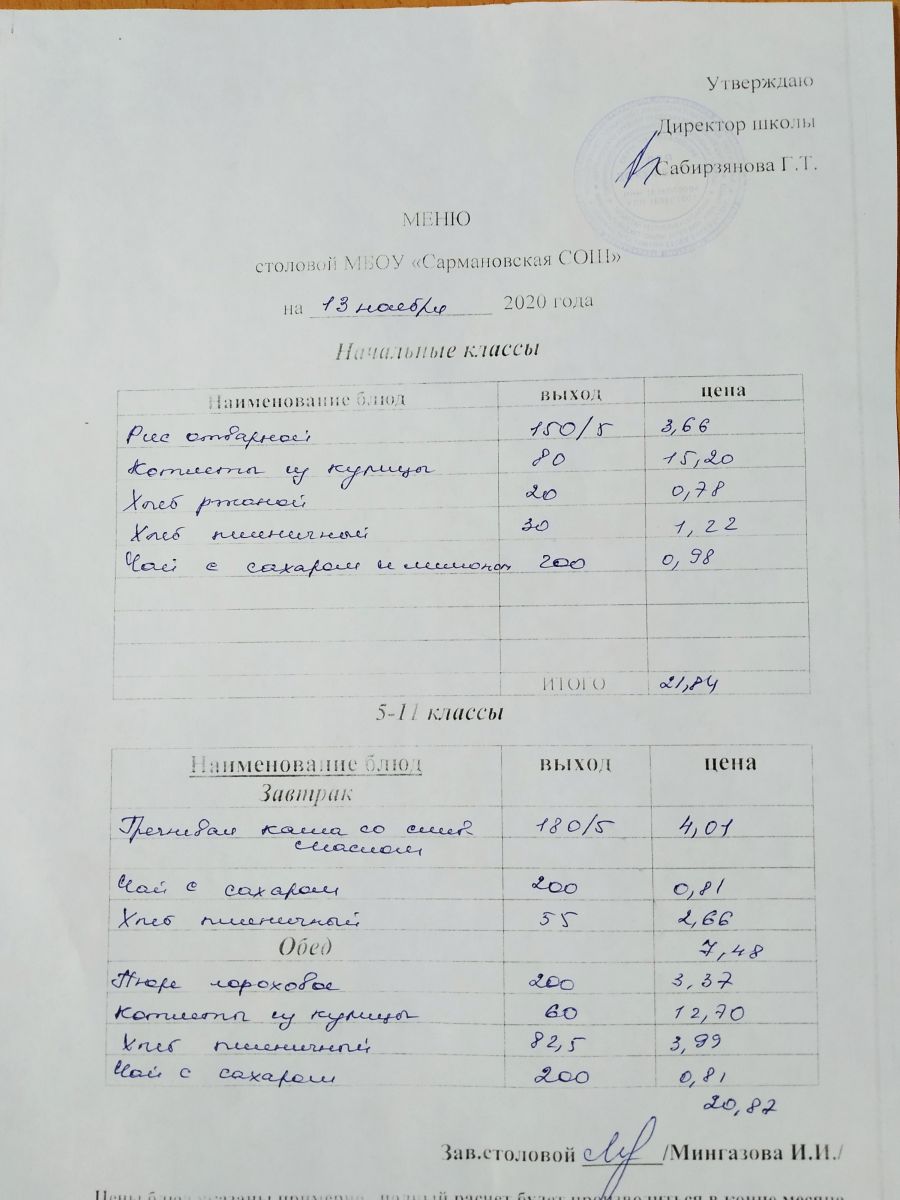 Утверждаю
Директор школы
Сабирзянова Г.Т.
МЕНЮ
столовой МБОУ «Сармановская СОШ»
на 13 ноября 2020 года
Начальные классы
Наименование блюд выход цена
Рис отварной 150/5 3,66
Котлеты из курицы 80 15,20
Хлеб ржаной 20 0,78
Хлеб пшеничный 30 1,22
Чай с сахаром и лимоном 200 0,98
ИТОГО 21,84
5-11 классы
Наименование блюд выход цена
Завтрак
Гречневая каша со слив. 180/5 4,01
маслом
Чай с сахаром 200 0,81
Хлеб пшеничный 55 2,66
Обед 7,48
Пюре гороховое 200 3,37
Котлеты из курицы 60 12,70
Хлеб пшеничный 82,5 3,99
Чай с сахаром 200 0,81
20,87
Зав.столовой /Мингазова И.И./
Цены блюд указаны примерно, реальный расчет будет производиться в конце месяца